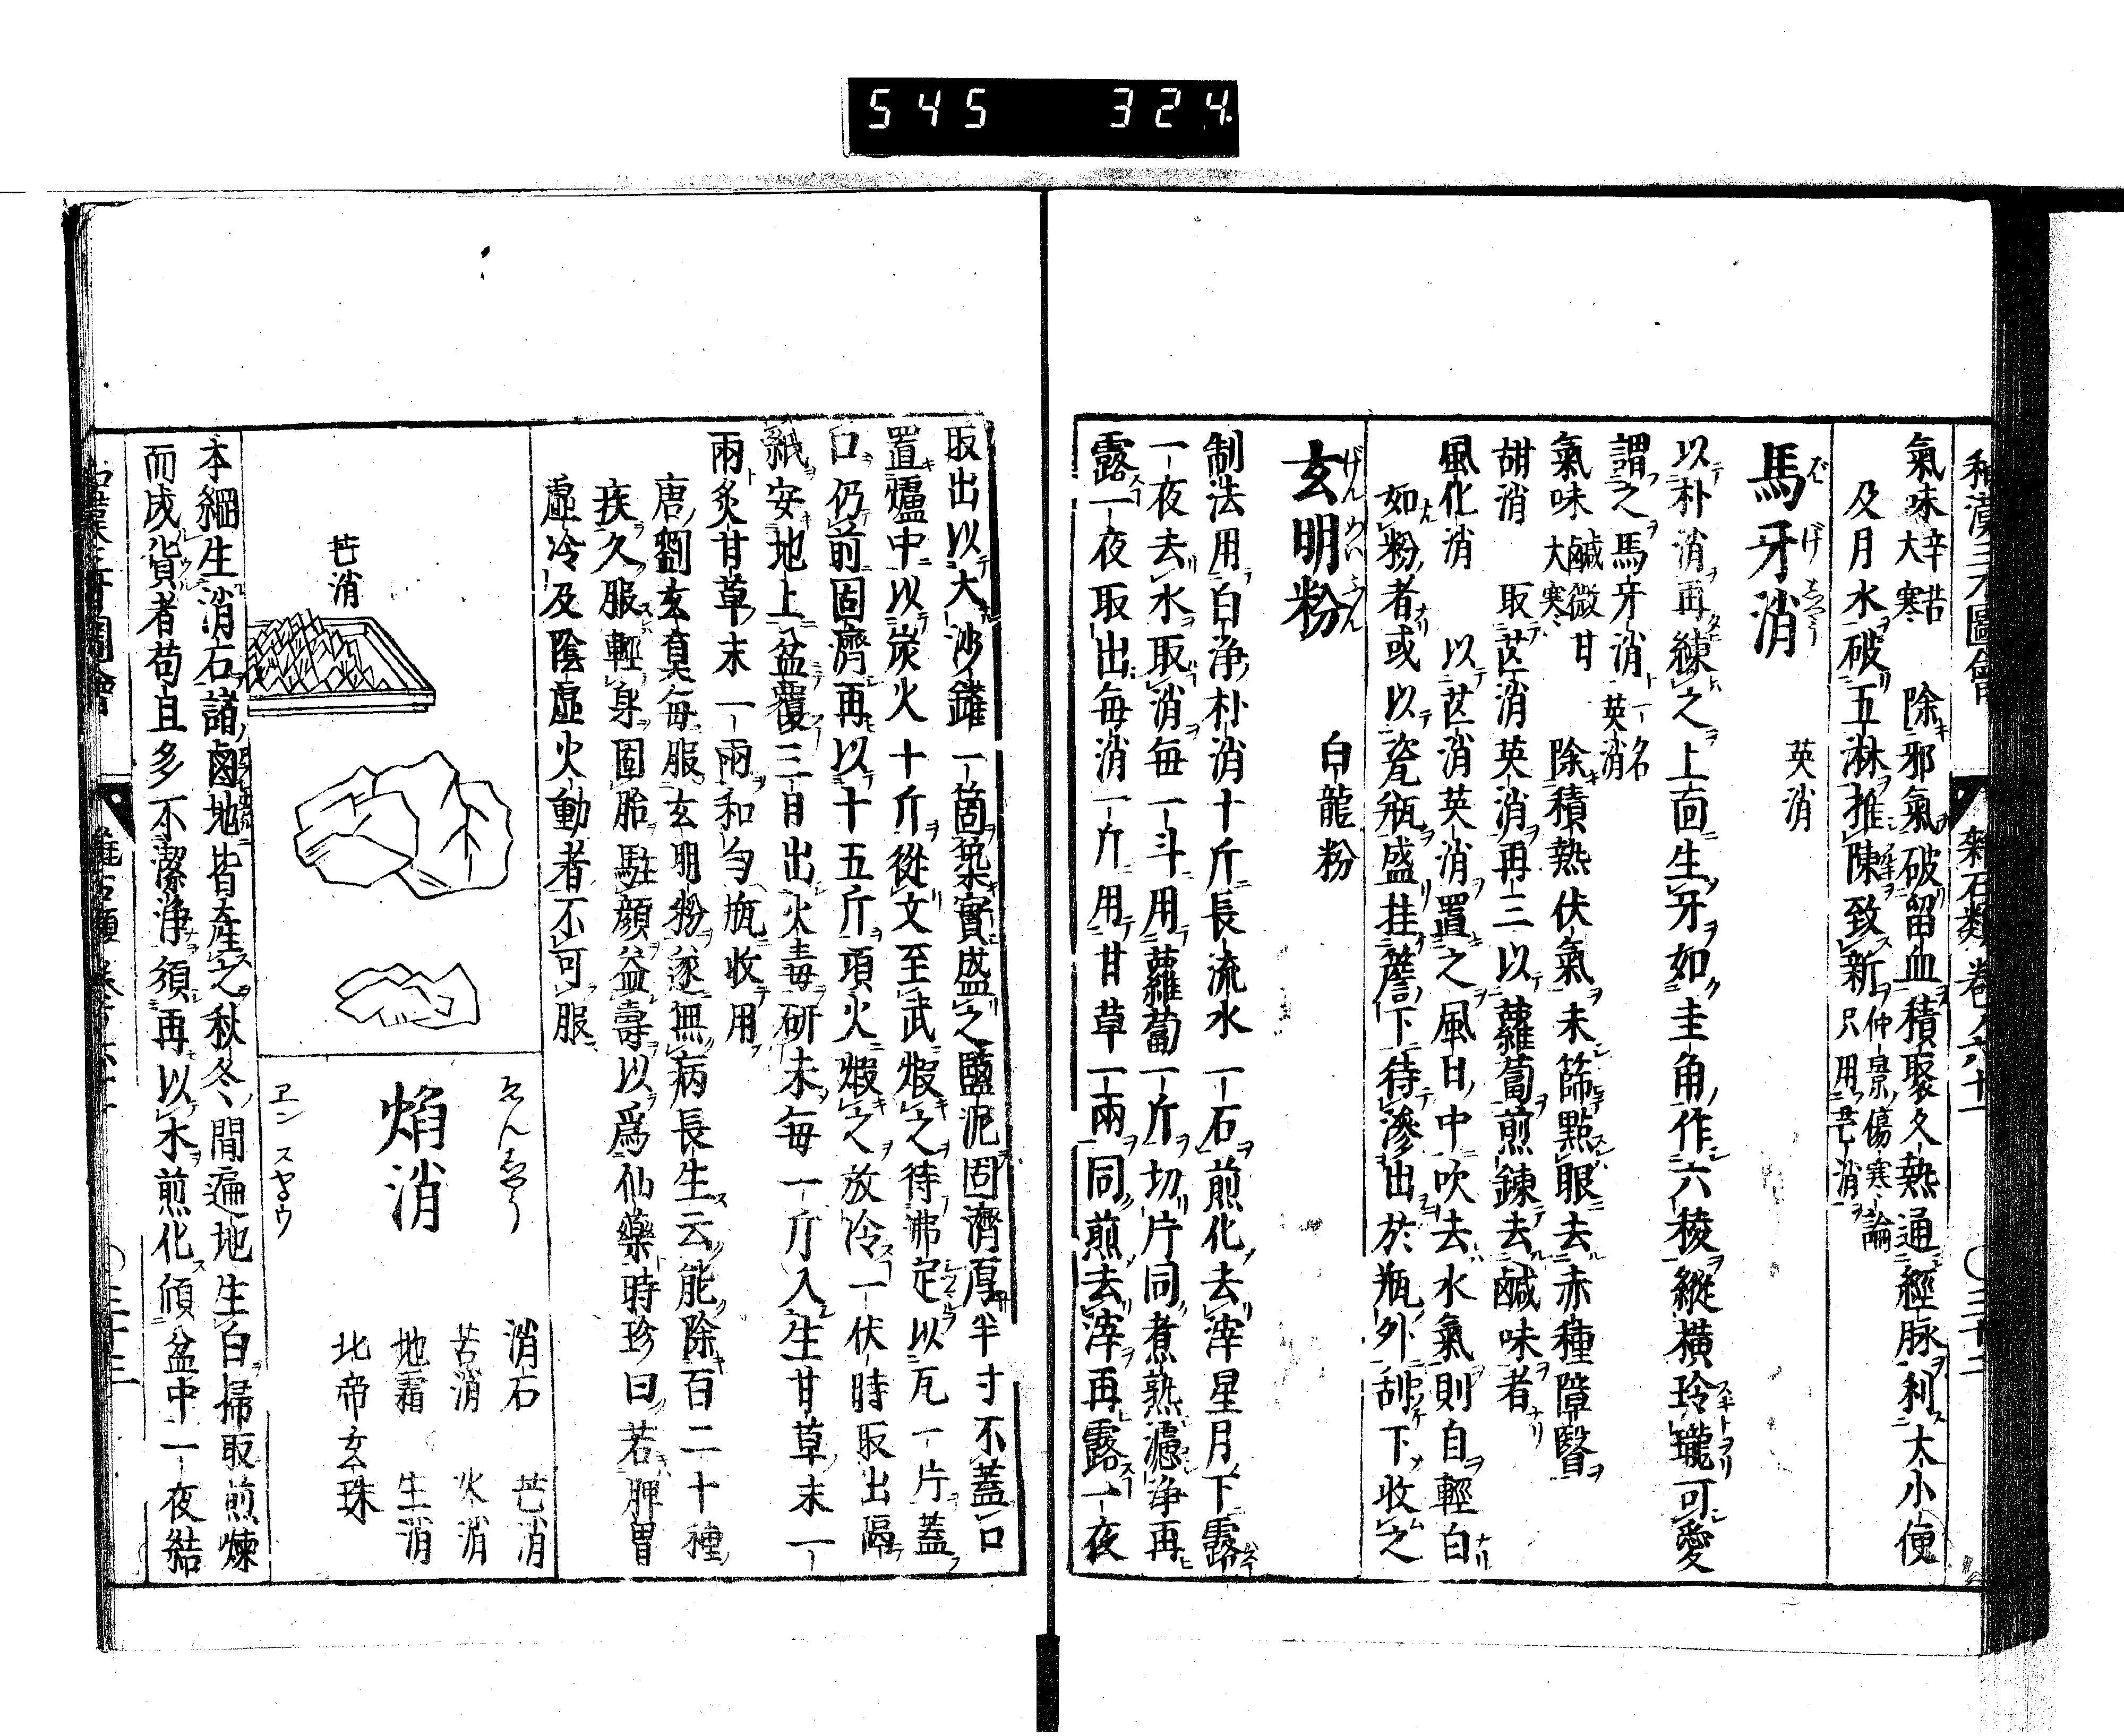 545 324.
和漢三才圖會 雜石類 卷六十一 ○三十二
氣味辛苦大寒 除邪氣破留血積聚久熱通經脉利大小便
及月水破五淋推陳致新仲景傷寒論只用芒消
馬牙消 英消
ばげしやう
以朴消再練之上面生牙如圭角作六稜縱橫玲瓏可愛
謂之馬牙消一名英消
氣味鹹微甘大寒 除積熱伏氣末篩點眼去赤種障翳
甜消 取芒消英消再三以蘿蔔煎鍊去鹹味者
風化消 以芒消英消置之風日中吹去水氣則自輕白
如粉者或以瓷瓶盛挂簷下待滲出於瓶外刮下收之
玄明粉 白龍粉
げんめいふん
制法用白淨朴消十斤長流水一石煎化去滓星月下露
一夜去水取消每一斗用蘿蔔一斤切片同煮熟濾淨再
露一夜取出每消一斤用甘草一兩同煎去滓再露一夜
取出以大沙罐一箇築實盛之鹽泥固濟厚半寸不蓋口
置爐中以炭火十斤從文至武煆之待沸定以瓦一片蓋
口仍前固濟再以十五斤頂火煆之放冷一伏時取出隔
紙安地上盆覆三日出火毒研末每一斤入生甘草末一
兩炙甘草末一兩和勻瓶收用
唐劉玄真每服玄明粉遂無病長生云能除百二十種
疾久服輕身固胎駐顔益壽以爲仙藥時珍曰若脾胃
虛冷及陰虛火動者不可服
芒消
焰消
ゑんしやう
ヱンスヤウ
消石 芒消
苦消 火消
地霜 生消
北帝玄珠
本綱生消石諸鹵地皆產之秋冬間遍地生白掃取煎煉
而成貨者苟且多不潔淨須再以水煎化傾盆中一夜結
雜石類 卷六十一 ○三十三